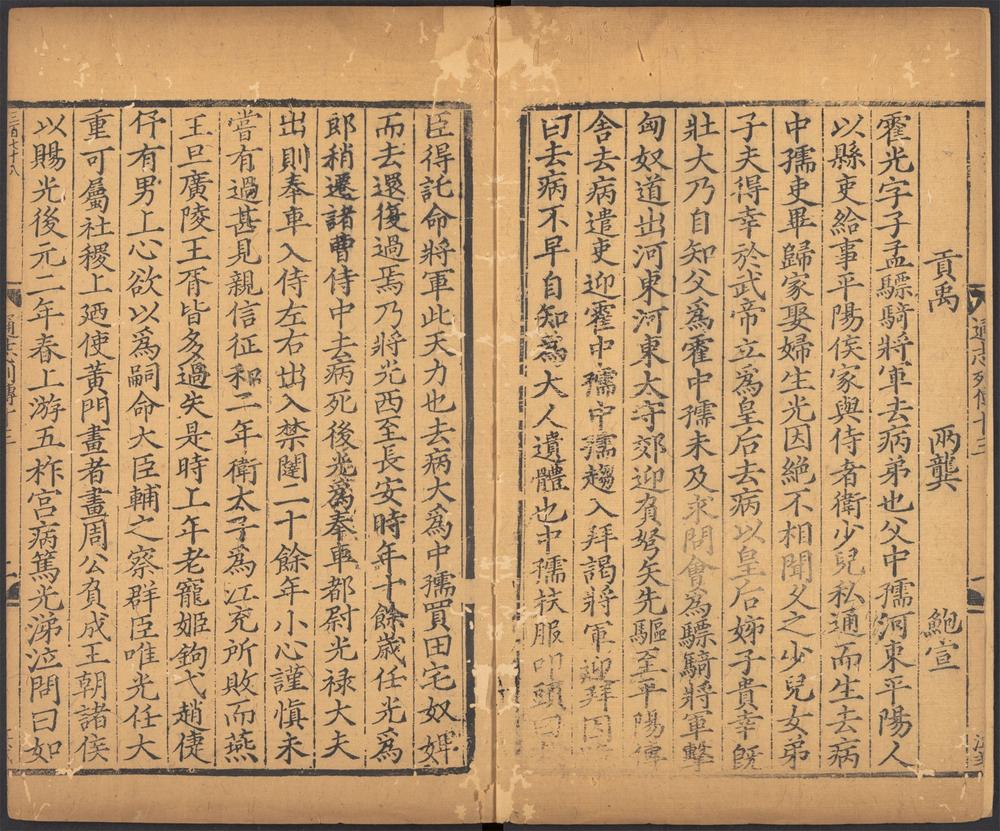 通志列傳十三
貢禹 兩龔 鮑宣
霍光字子孟驃騎將軍去病弟也父中孺河東平陽人
以縣吏給事平陽侯家與侍者衛少兒私通而生去病
中孺吏畢歸家娶婦生光因絶不相聞久之少兒女弟
子夫得幸於武帝立爲皇后去病以皇后姊子貴幸旣
壯大乃自知父爲霍中孺未及求問會爲驃騎將軍擊
匈奴道出河東河東太守郊迎負弩矢先驅至平陽傳
舍去病遣吏迎霍中孺中孺趨入拜謁將軍迎拜因
曰去病不早自知爲大人遺體也中孺扶服叩頭曰
臣得託命將軍此天力也去病大爲中孺買田宅奴婢
而去還復過焉乃將光西至長安時年十餘歲任光爲
郎稍遷諸曹侍中去病死後光爲奉車都尉光禄大夫
出則奉車入侍左右出入禁闥二十餘年小心謹慎未
嘗有過甚見親信征和二年衛太子爲江充所敗而燕
王旦廣陵王胥皆多過失是時上年老寵姬鉤弋趙倢
伃有男上心欲以爲嗣命大臣輔之察群臣唯光任大
重可屬社稷上廼使黃門畫者畫周公負成王朝諸侯
以賜光後元二年春上游五柞宮病篤光涕泣問曰如
三百七十八